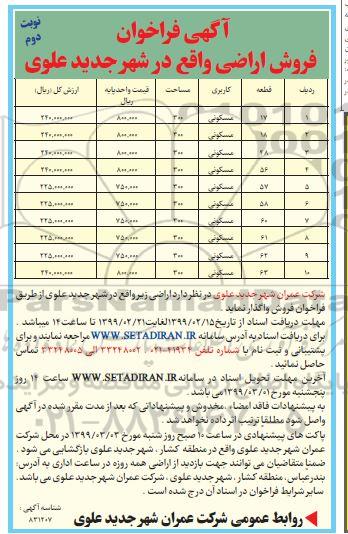 نوبت دوم
آگهی فراخوان
فروش اراضی واقع در شهر جدید علوی
ردیف قطعه کاربری مساحت قیمت واحد پایه ریال ارزش کل (ریال)
۱ ۱۷ مسکونی ۳۰۰ ۸۰۰,۰۰۰ ۲۴۰,۰۰۰,۰۰۰
۲ ۱۸ مسکونی ۳۰۰ ۸۰۰,۰۰۰ ۲۴۰,۰۰۰,۰۰۰
۳ ۲۸ مسکونی ۳۰۰ ۸۰۰,۰۰۰ ۲۴۰,۰۰۰,۰۰۰
۴ ۵۶ مسکونی ۳۰۰ ۸۰۰,۰۰۰ ۲۴۰,۰۰۰,۰۰۰
۵ ۵۷ مسکونی ۳۰۰ ۷۵۰,۰۰۰ ۲۲۵,۰۰۰,۰۰۰
۶ ۵۸ مسکونی ۳۰۰ ۷۵۰,۰۰۰ ۲۲۵,۰۰۰,۰۰۰
۷ ۶۰ مسکونی ۳۰۰ ۷۵۰,۰۰۰ ۲۲۵,۰۰۰,۰۰۰
۸ ۶۱ مسکونی ۳۰۰ ۷۵۰,۰۰۰ ۲۲۵,۰۰۰,۰۰۰
۹ ۶۲ مسکونی ۳۰۰ ۷۵۰,۰۰۰ ۲۲۵,۰۰۰,۰۰۰
۱۰ ۶۳ مسکونی ۳۰۰ ۸۰۰,۰۰۰ ۲۴۰,۰۰۰,۰۰۰
شرکت عمران شهر جدید علوی در نظر دارد اراضی زیر واقع در شهر جدید علوی از طریق
فراخوان فروش واگذار نماید
مهلت دریافت اسناد از تاریخ ۱۳۹۹/۰۲/۱۵ لغایت ۱۳۹۹/۰۲/۲۱ تا ساعت ۱۴ میباشد .
برای دریافت اسناد به آدرس سامانه WWW.SETADIRAN.IR مراجعه نمایند و برای
پشتیبانی و ثبت نام با شماره تلفن ۴۱۹۳۴-۰۲۱ و ۳۳۲۴۸۰۰۲ الی ۳۳۲۴۸۰۰۵ تماس
حاصل نمائید .
آخرین مهلت تحویل اسناد در سامانه WWW.SETADIRAN.IR ساعت ۱۴ روز
پنجشنبه مورخ ۱۳۹۹/۰۳/۰۱ می باشد .
به پیشنهادات فاقد امضاء ، مخدوش و پیشنهاداتی که بعد از مدت مقرر شده در آگهی
واصل شود مطلقا ترتیب اثر داده نخواهد شد .
پاکت های پیشنهادی در ساعت ۱۰ صبح روز شنبه مورخ ۱۳۹۹/۰۳/۰۳ در محل شرکت
عمران شهر جدید علوی واقع در منطقه کشار ، شهر جدید علوی بازگشایی می شود .
ضمنا متقاضیان می توانند جهت بازدید از اراضی همه روزه در ساعت اداری به آدرس:
بندرعباس ، منطقه کشار ، شهر جدید علوی ، شرکت عمران شهر جدید علوی می باشد .
سایر شرایط فراخوان در اسناد آن درج شده است .
شناسه آگهی : ۸۳۱۲۰۷
روابط عمومی شرکت عمران شهر جدید علوی